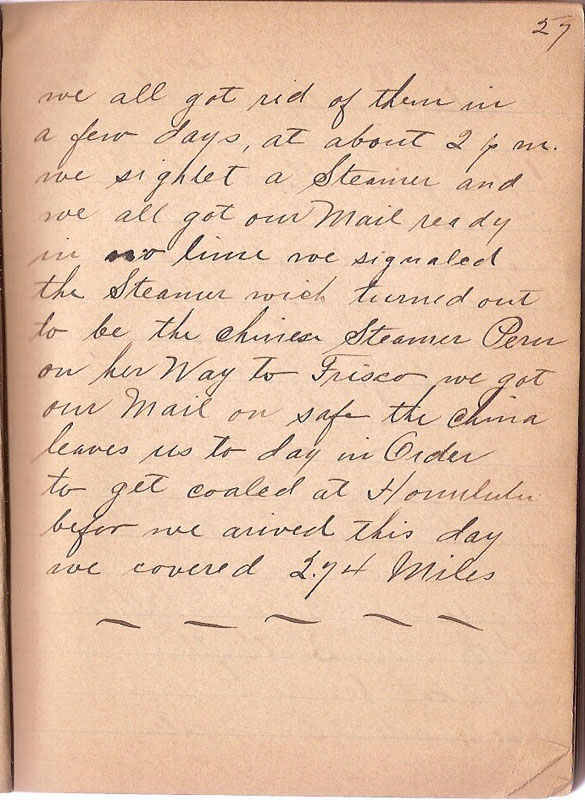 27
we all got rid of them in
a few days, at about 2 p m.
we sightet a Steamer and
we all got our Mail ready
in no time we signaled
the Steamer wich turned out
to be the chinese Steamer Peru
on her Way to Frisco we got
our Mail on safe the china
leaves us to day in Order
to get coaled at Honululu
befor we arived this day
we covered 274 Miles